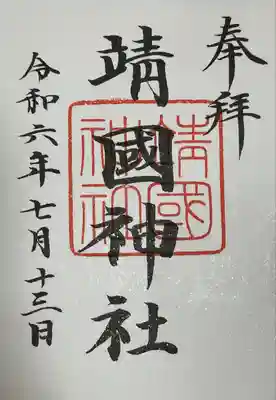 奉拝
靖國神社
靖國
神社
令和六年七月十三日